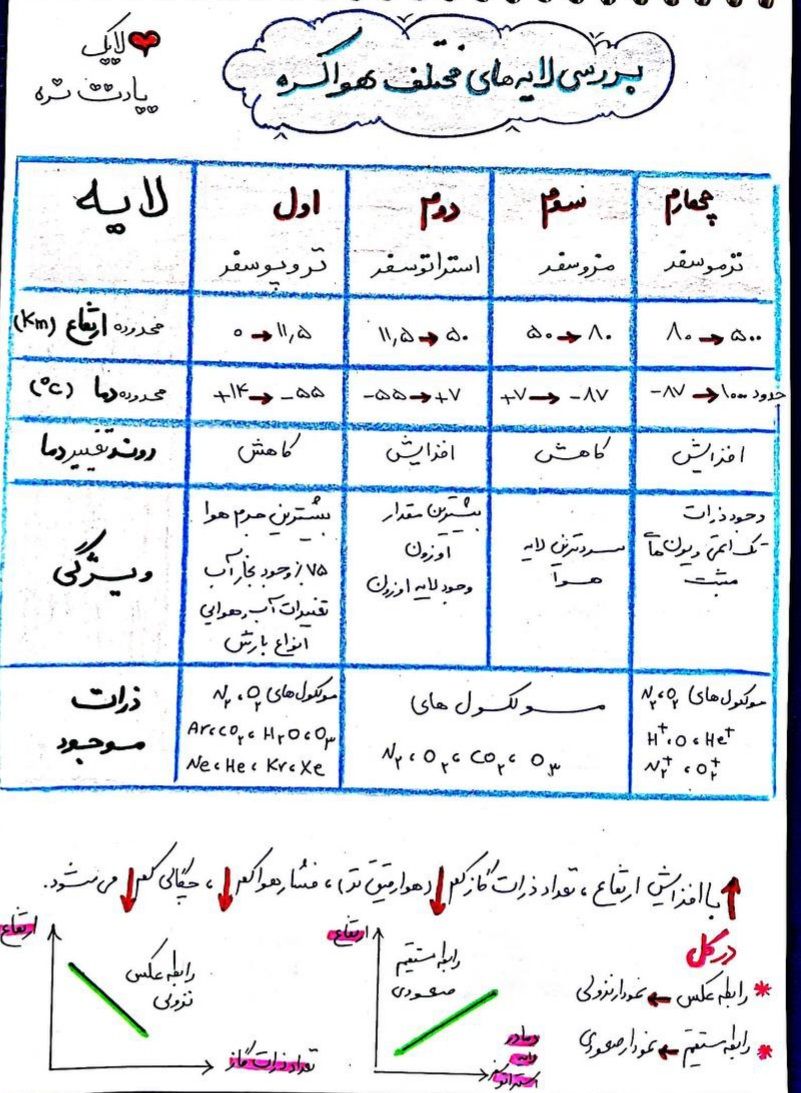 لایک
یادت نره
بررسی لایه‌های مختلف هواکره
لایه
اول
دوم
سوم
چهارم
تروپوسفر
استراتوسفر
مزوسفر
ترموسفر
محدوده ارتفاع (Km)
۰ → ۱۱,۵
۱۱,۵ → ۵۰
۵۰ → ۸۰
۸۰ → ۵۰۰
محدوده دما (°C)
+۱۴ → -۵۵
-۵۵ → +۷
+۷ → -۸۷
-۸۷ → ۱۰۰۰ حدود
روند تغییر دما
کاهش
افزایش
کاهش
افزایش
ویژگی
بیشترین جرم هوا
۷۵٪ وجود بخار آب
تغییرات آب و هوایی
انواع بارش
بیشترین مقدار
اوزون
وجود لایه اوزون
سردترین لایه
هوا
وجود ذرات
تک اتمی و یون های
مثبت
ذرات
موجود
مولکول های N₂، O₂
Ar، CO₂، H₂O، O₃
Ne، He، Kr، Xe
مولکول های
N₂، O₂، CO₂، O₃
مولکول های N₂، O₂
H⁺، O، He⁺
N₂⁺، O₂⁺
با افزایش ارتفاع ↑، تعداد ذرات گاز کم ↓ (هوا رقیق تر)، فشار هوا کم ↓، چگالی کم ↓ می شود.
در کل
* رابطه عکس ← نمودار نزولی
* رابطه مستقیم ← نمودار صعودی
ارتفاع
رابطه مستقیم
صعودی
دما در
لایه
استراتوسفر
ارتفاع
رابطه عکس
نزولی
تعداد ذرات گاز